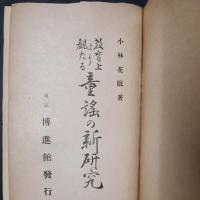 小林花眠著
教育上
より
観たる
童謡の新研究
東京 博進館發行